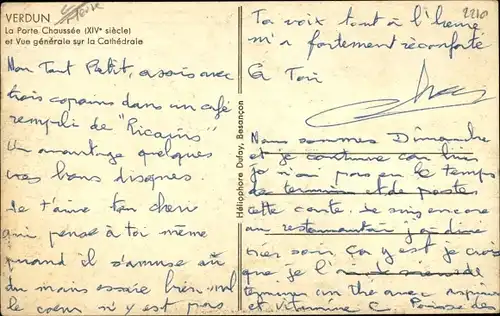 VERDUN
La Porte Chaussée (XIVe siècle)
et Vue générale sur la Cathédrale
2210
Mon Tout Petit, assis avec
trois copains dans un café
rempli de "Ricains"
Un avantage quelques
très bons disques.
Je t'aime ton chéri
qui pense à toi même
quand il s'amuse ou
du mais essaie bien
le coeur n'y est pas
Héliophore Dufay, Besançon
Ta voix tout à l'heure
m'a fortement réconforté
À Toi
Nous sommes Dimanche
et je continue car hier
je n'ai pas eu le temps
de terminer et de poster
cette carte. Je suis encore
au restaurant j'ai dîné
hier soir. Ça y est je crois
que je l'ai
terminer un thé avec aspirine
et vitamine C.